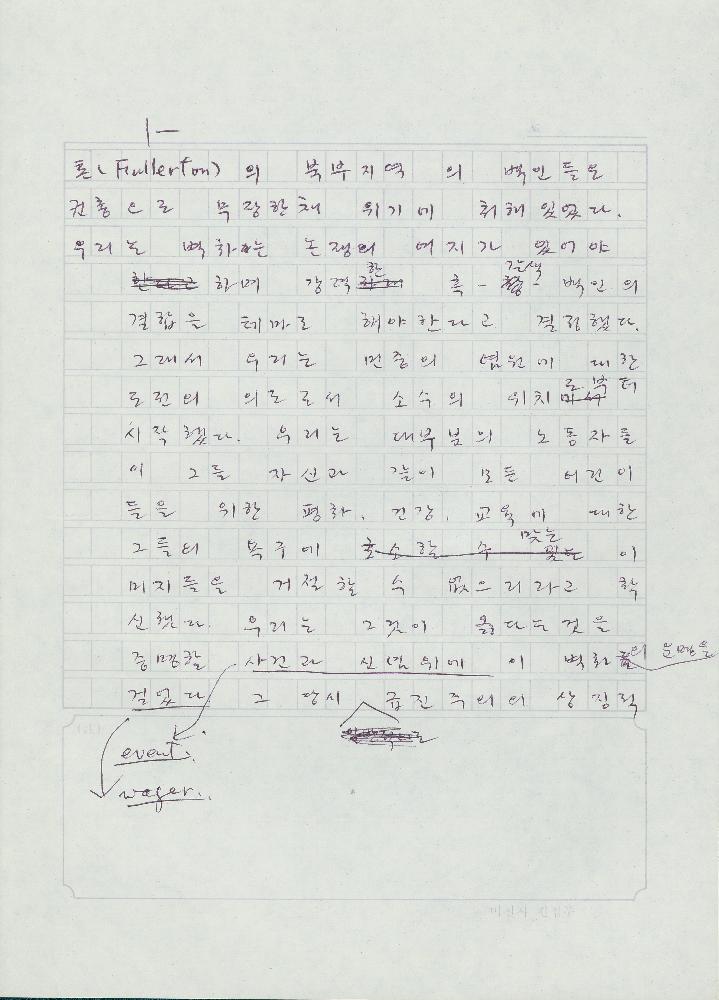 톤(Fullerton)의 북부지역의 백인들은
권총으로 무장한채 위기에 취해 있었다.
우리는 벽화는 논쟁의 여지가 있어야
하며 강력한 흑-갈색-백인의
결합을 테마로 해야한다라고 결정했다.
그래서 우리는 민중의 염원에 대한
도전의 의도로서 소수의 위치로부터
시작했다. 우리는 대부분의 노동자들
이 그들 자신과 같이 모든 어린이
들을 위한 평화, 건강, 교육에 대한
그들의 욕구에 맞는 이
미지들을 거절할 수 없으리라고 확
신했다. 우리는 그것이 옳다는 것을
증명할 사건과 신념위에 이 벽화들의 운명을
걸었다 그 당시 급진주의의 상징적
event.
wager.